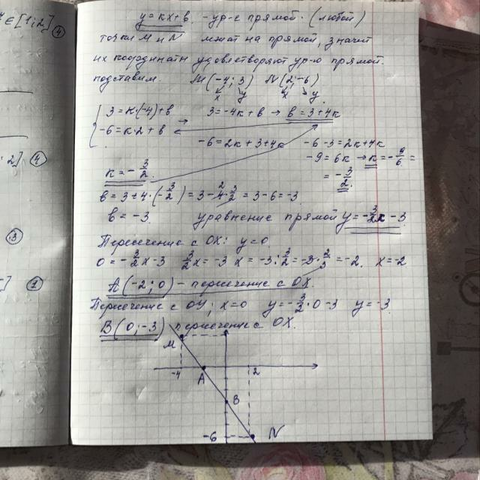 ∈[1;2] (4)
y=kx+b, -ур-е прямой. (любой)
точки M и N лежат на прямой, значит
их координаты удовлетворяют ур-ю прямой.
подставим M(-4; 3) N(2;-6)
x y x y
3=k·(-4)+b → 3=-4k+b → b=3+4k
-6=k·2+b
-6=2k+3+4k -6-3=2k+4k
-9=6k → k=-9/6=
k=-3/2
=-3/2.
b=3+4·(-3/2)=3-4·3/2=3-6=-3
b=-3. уравнение прямой y=-3/2x-3
Пересечение с OX: y=0
0=-3/2x-3 3/2x=-3 x=-3:3/2=-3·2/3=-2. x=-2
A(-2;0) - пересечение с OX.
Пересечение с OY; x=0 y=-3/2·0-3 y=-3
B(0;-3) пересечение с OX.
M
-4
A
2
B
-6
N
;2] (4)
(3)